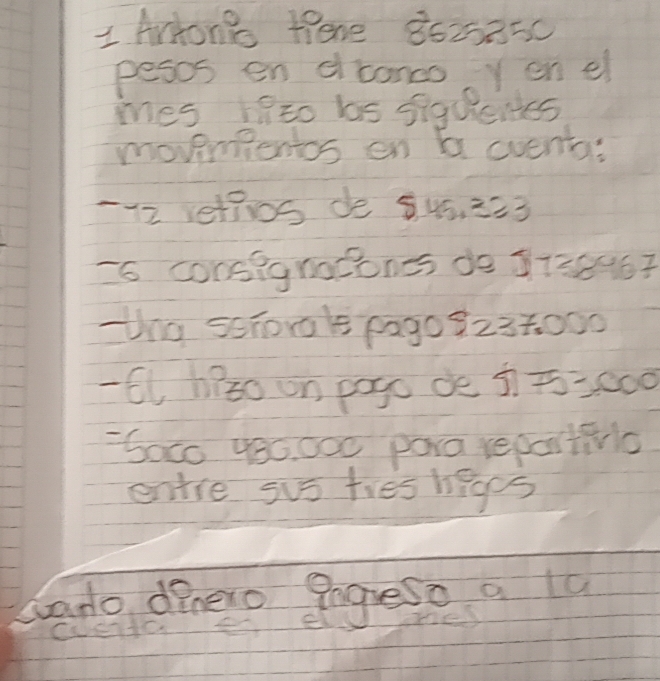 1 Antonio tiene 8625.350
pesos en el banco y en el
mes hizo los siguientes
movimientos en la cuenta:
-12 retiros de $45.323
-6 consignaciones de $128467
-Una señora le pago $237.000
-El hizo un pago de $753.000
-Saco 480.000 para repartirlo
entre sus tres higos
cuanto dinero ingreso a la
cuenta en el mes